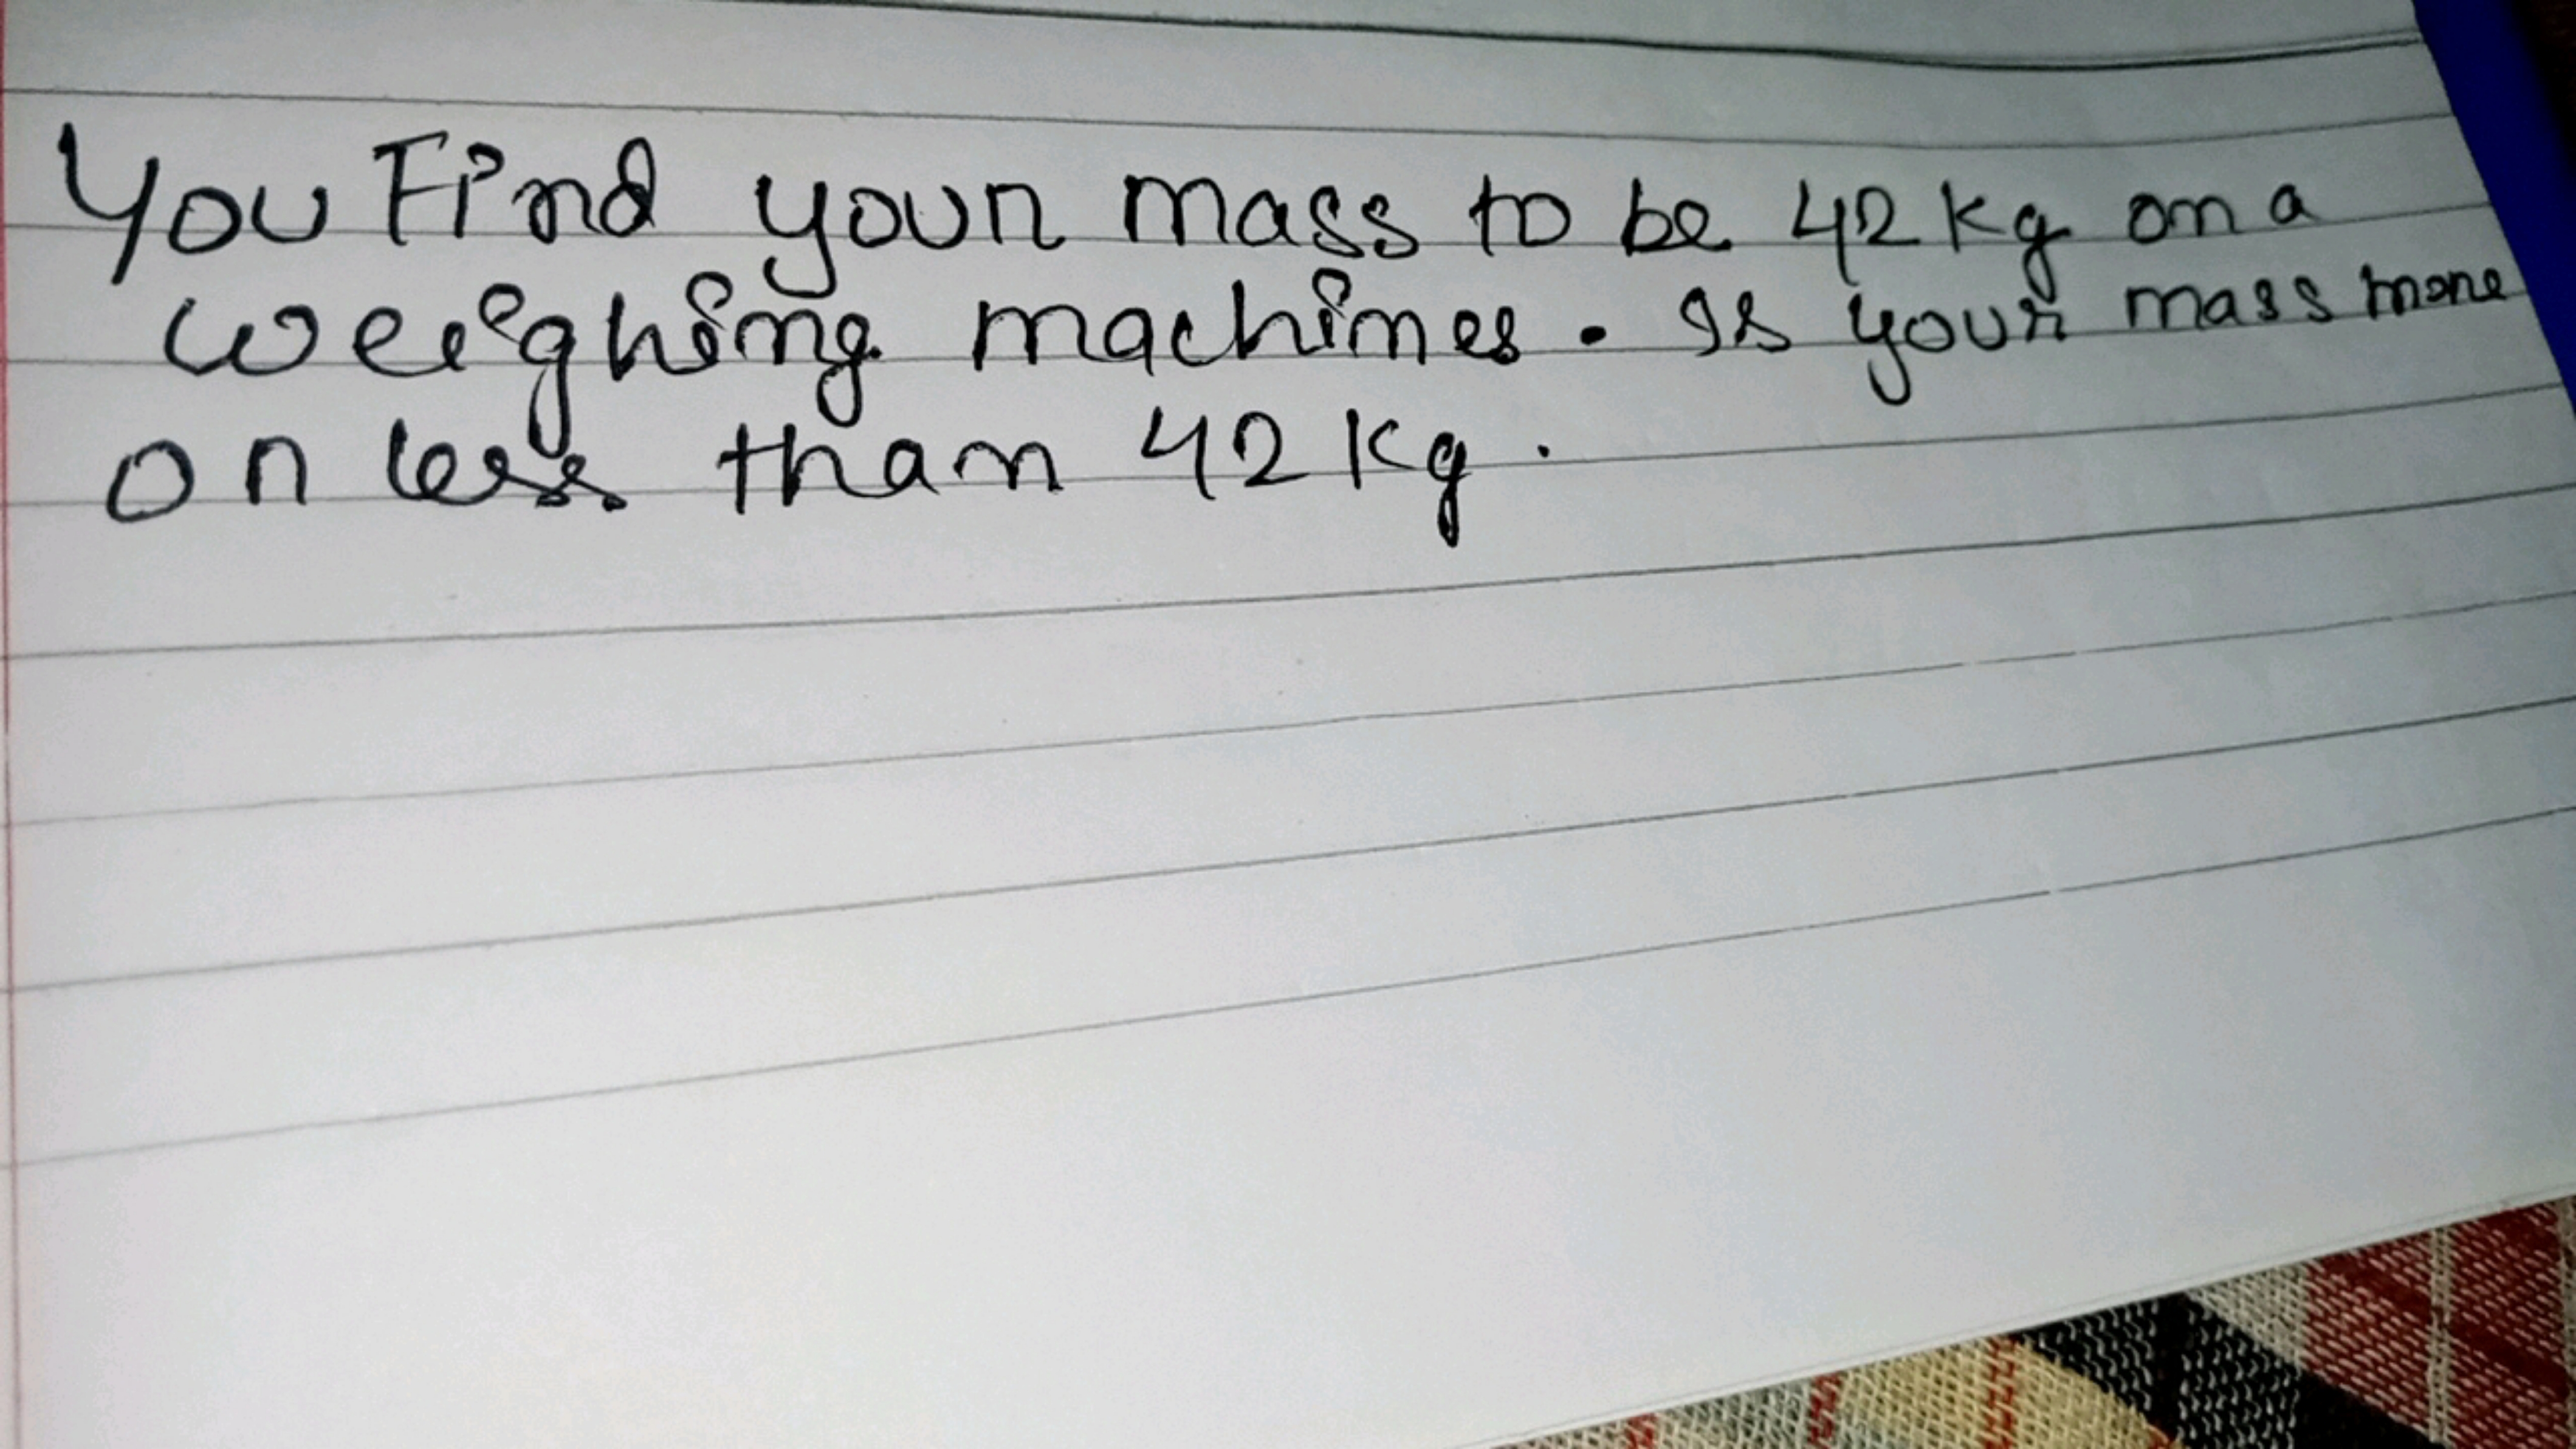 You Find your mass to be 42 kg on a
weeighing machines. Is your mass more
or less than 42 kg.